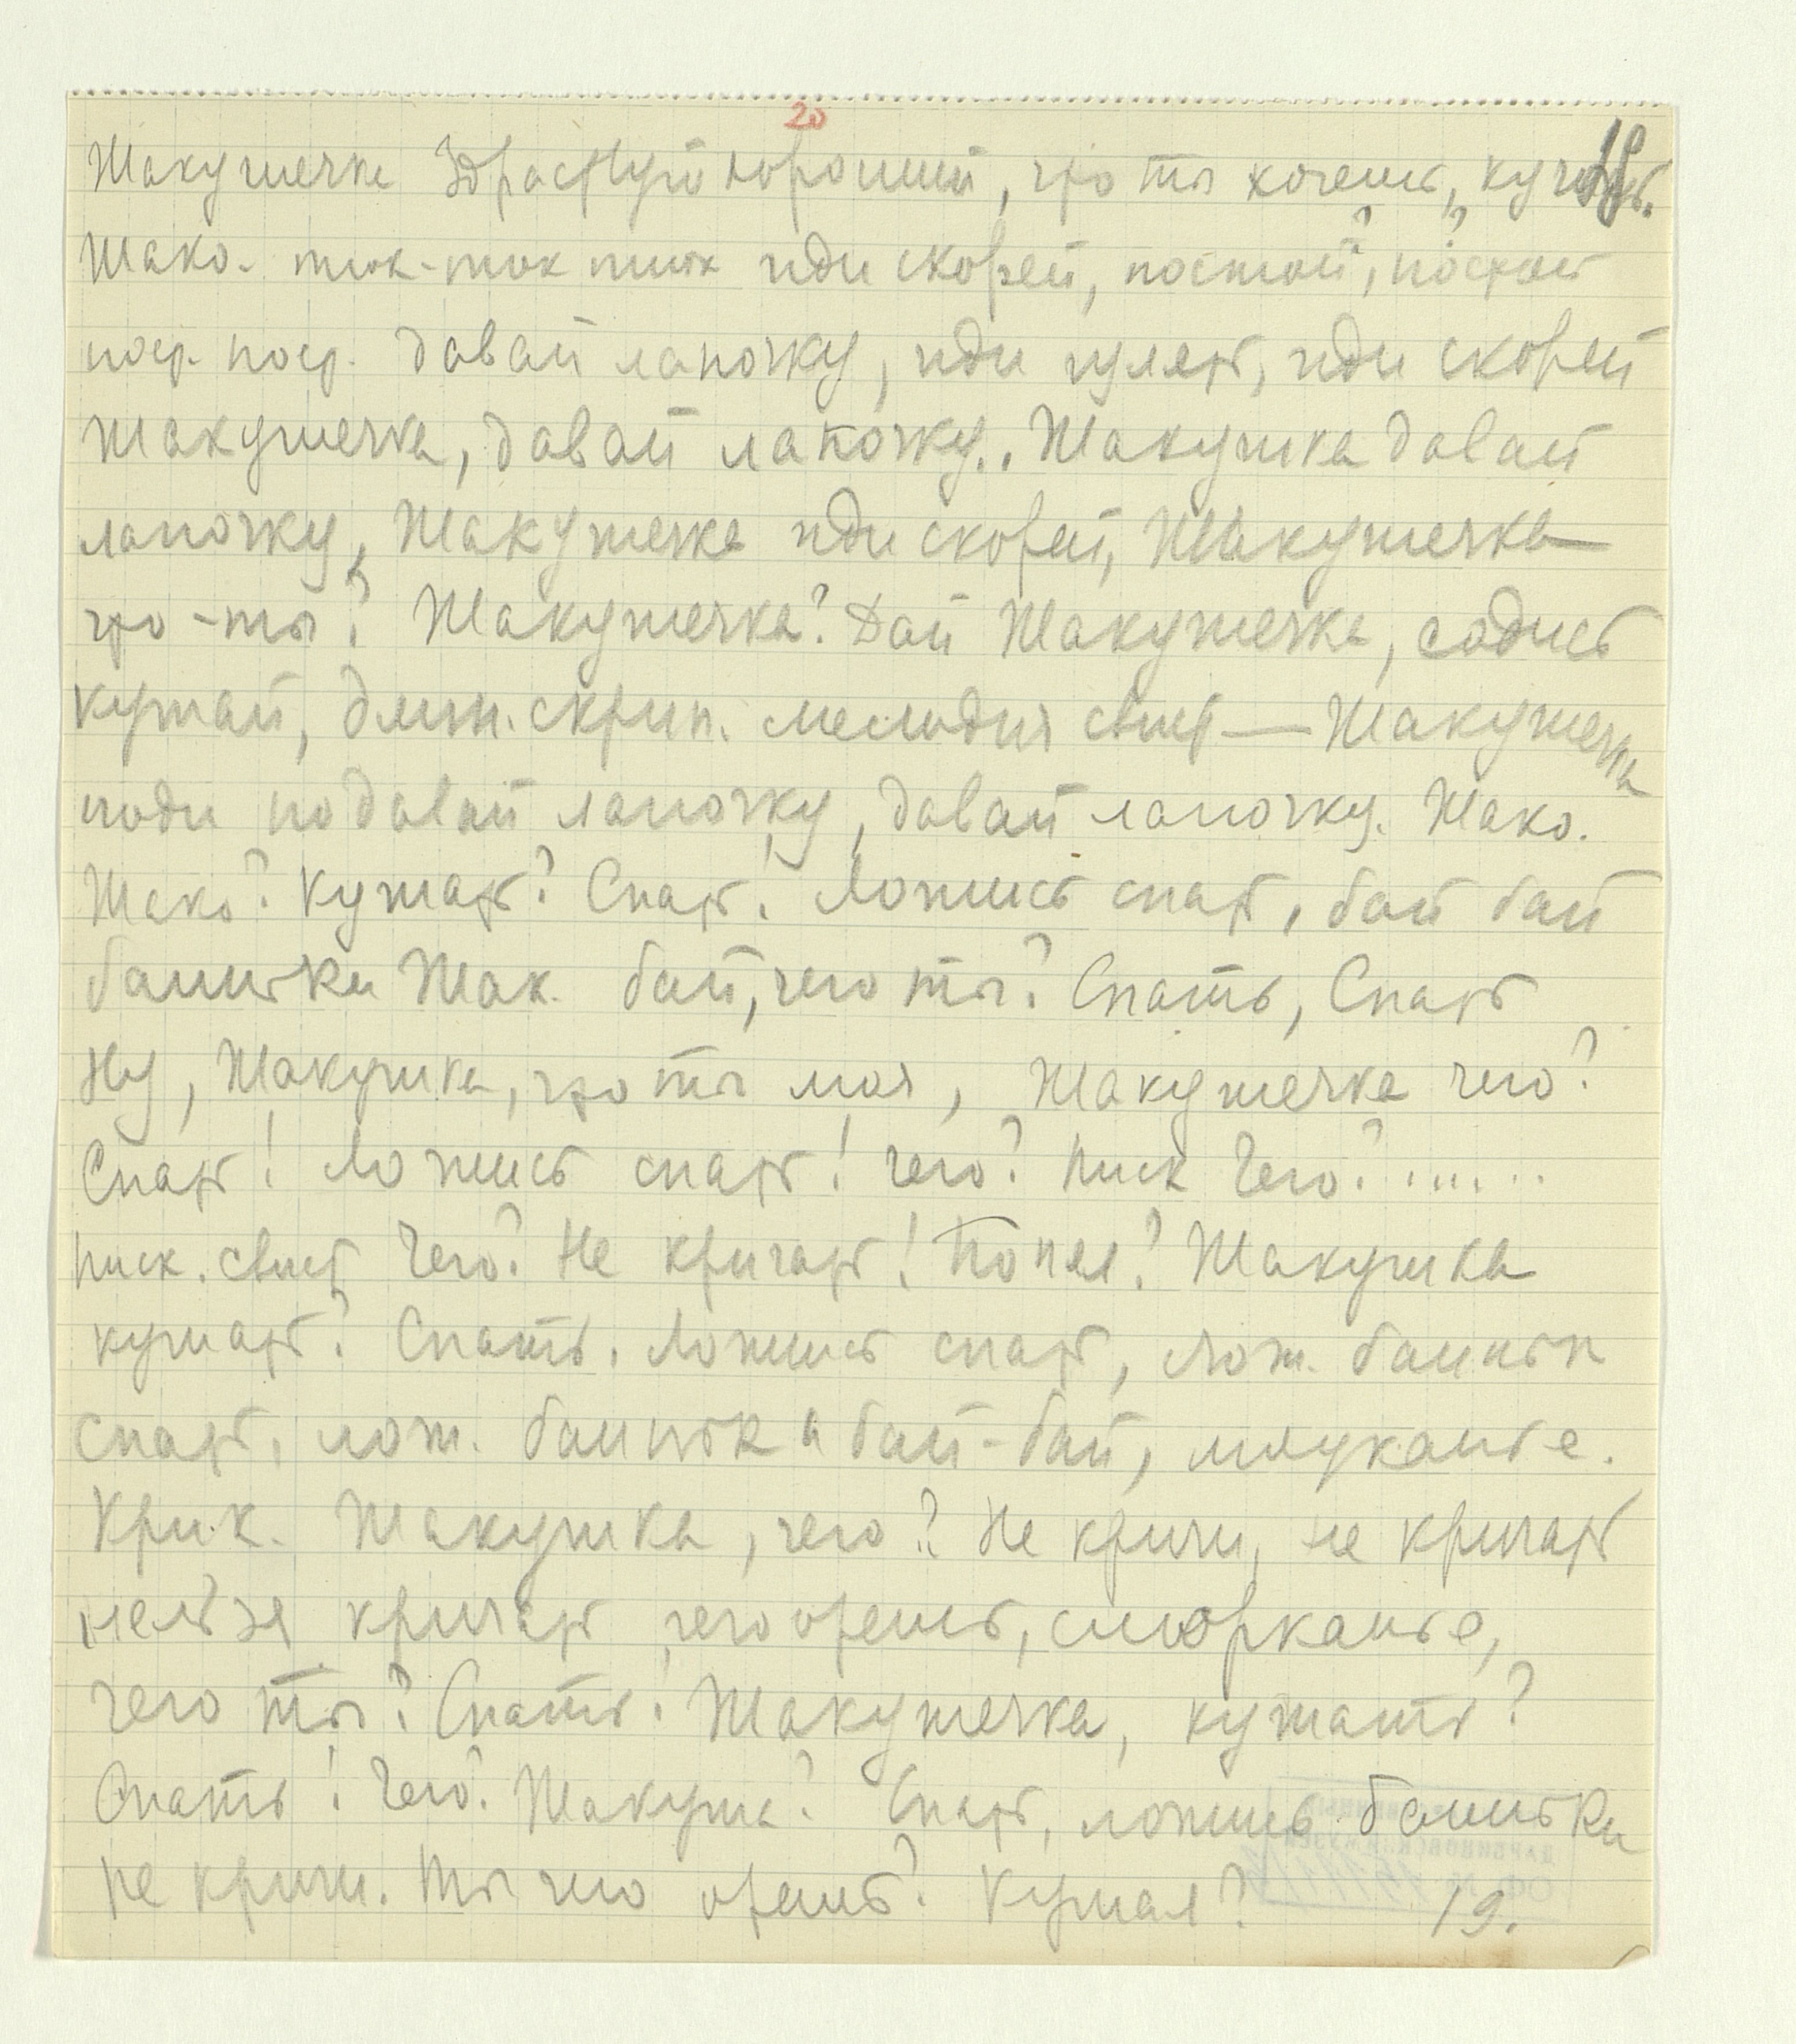 20
18.
Жакушечка Здраствуй хороший, что ты хочешь, кушать.
Жако - тюк-тюк тюк иди скорей, постой, постой
пост. пост. давай лапочку, иди гулять, иди скорей
Жакушечка, давай лапочку.. Жакушка давай
лапочку, Жакушечка иди скорей, Жакушечка—
что-ты? Жакушечка? Дай Жакушечка, садись
кушай, длин. скрип. мелодия свист — Жакушечка
поди подавай лапочку, давай лапочку. Жако.
Жако? Кушать? Спать! Ложись спать, бай бай
баиньки Жак. бай, чего ты? Спать, Спать
Ну, Жакушка, что ты моя, Жакушечка чего?
Спать! Ложись спать! чего? писк Чего? ......
писк. свист Чего? Не кричать! Попка? Жакушка
кушать? Спать. Ложись спать, лож. баиньк
спать, лож. баиньки бай-бай, мяуканье.
Крик. Жакушка, чего? Не кричи, не кричать
нельзя кричать чего орешь, сморканье,
чего ты? Спать! Жакушечка, кушать?
Спать! Чего? Жакуша? Спать, ложись баиньки
не кричи. Ты чего орешь? Кушал? 19.